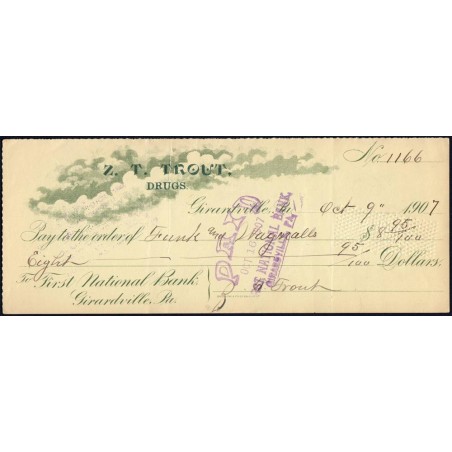 No 1166
Z. T. TROUT.
DRUGS
Girardville, Pa. Oct 9" 1907
Pay to the order of Funk and Wagnalls $8 95/100
Eight 95/100 Dollars.
To First National Bank,
Girardville, Pa.
Z T Trout
PAID
OCT
NATIONAL BANK
GIRARDVILLE, PA.